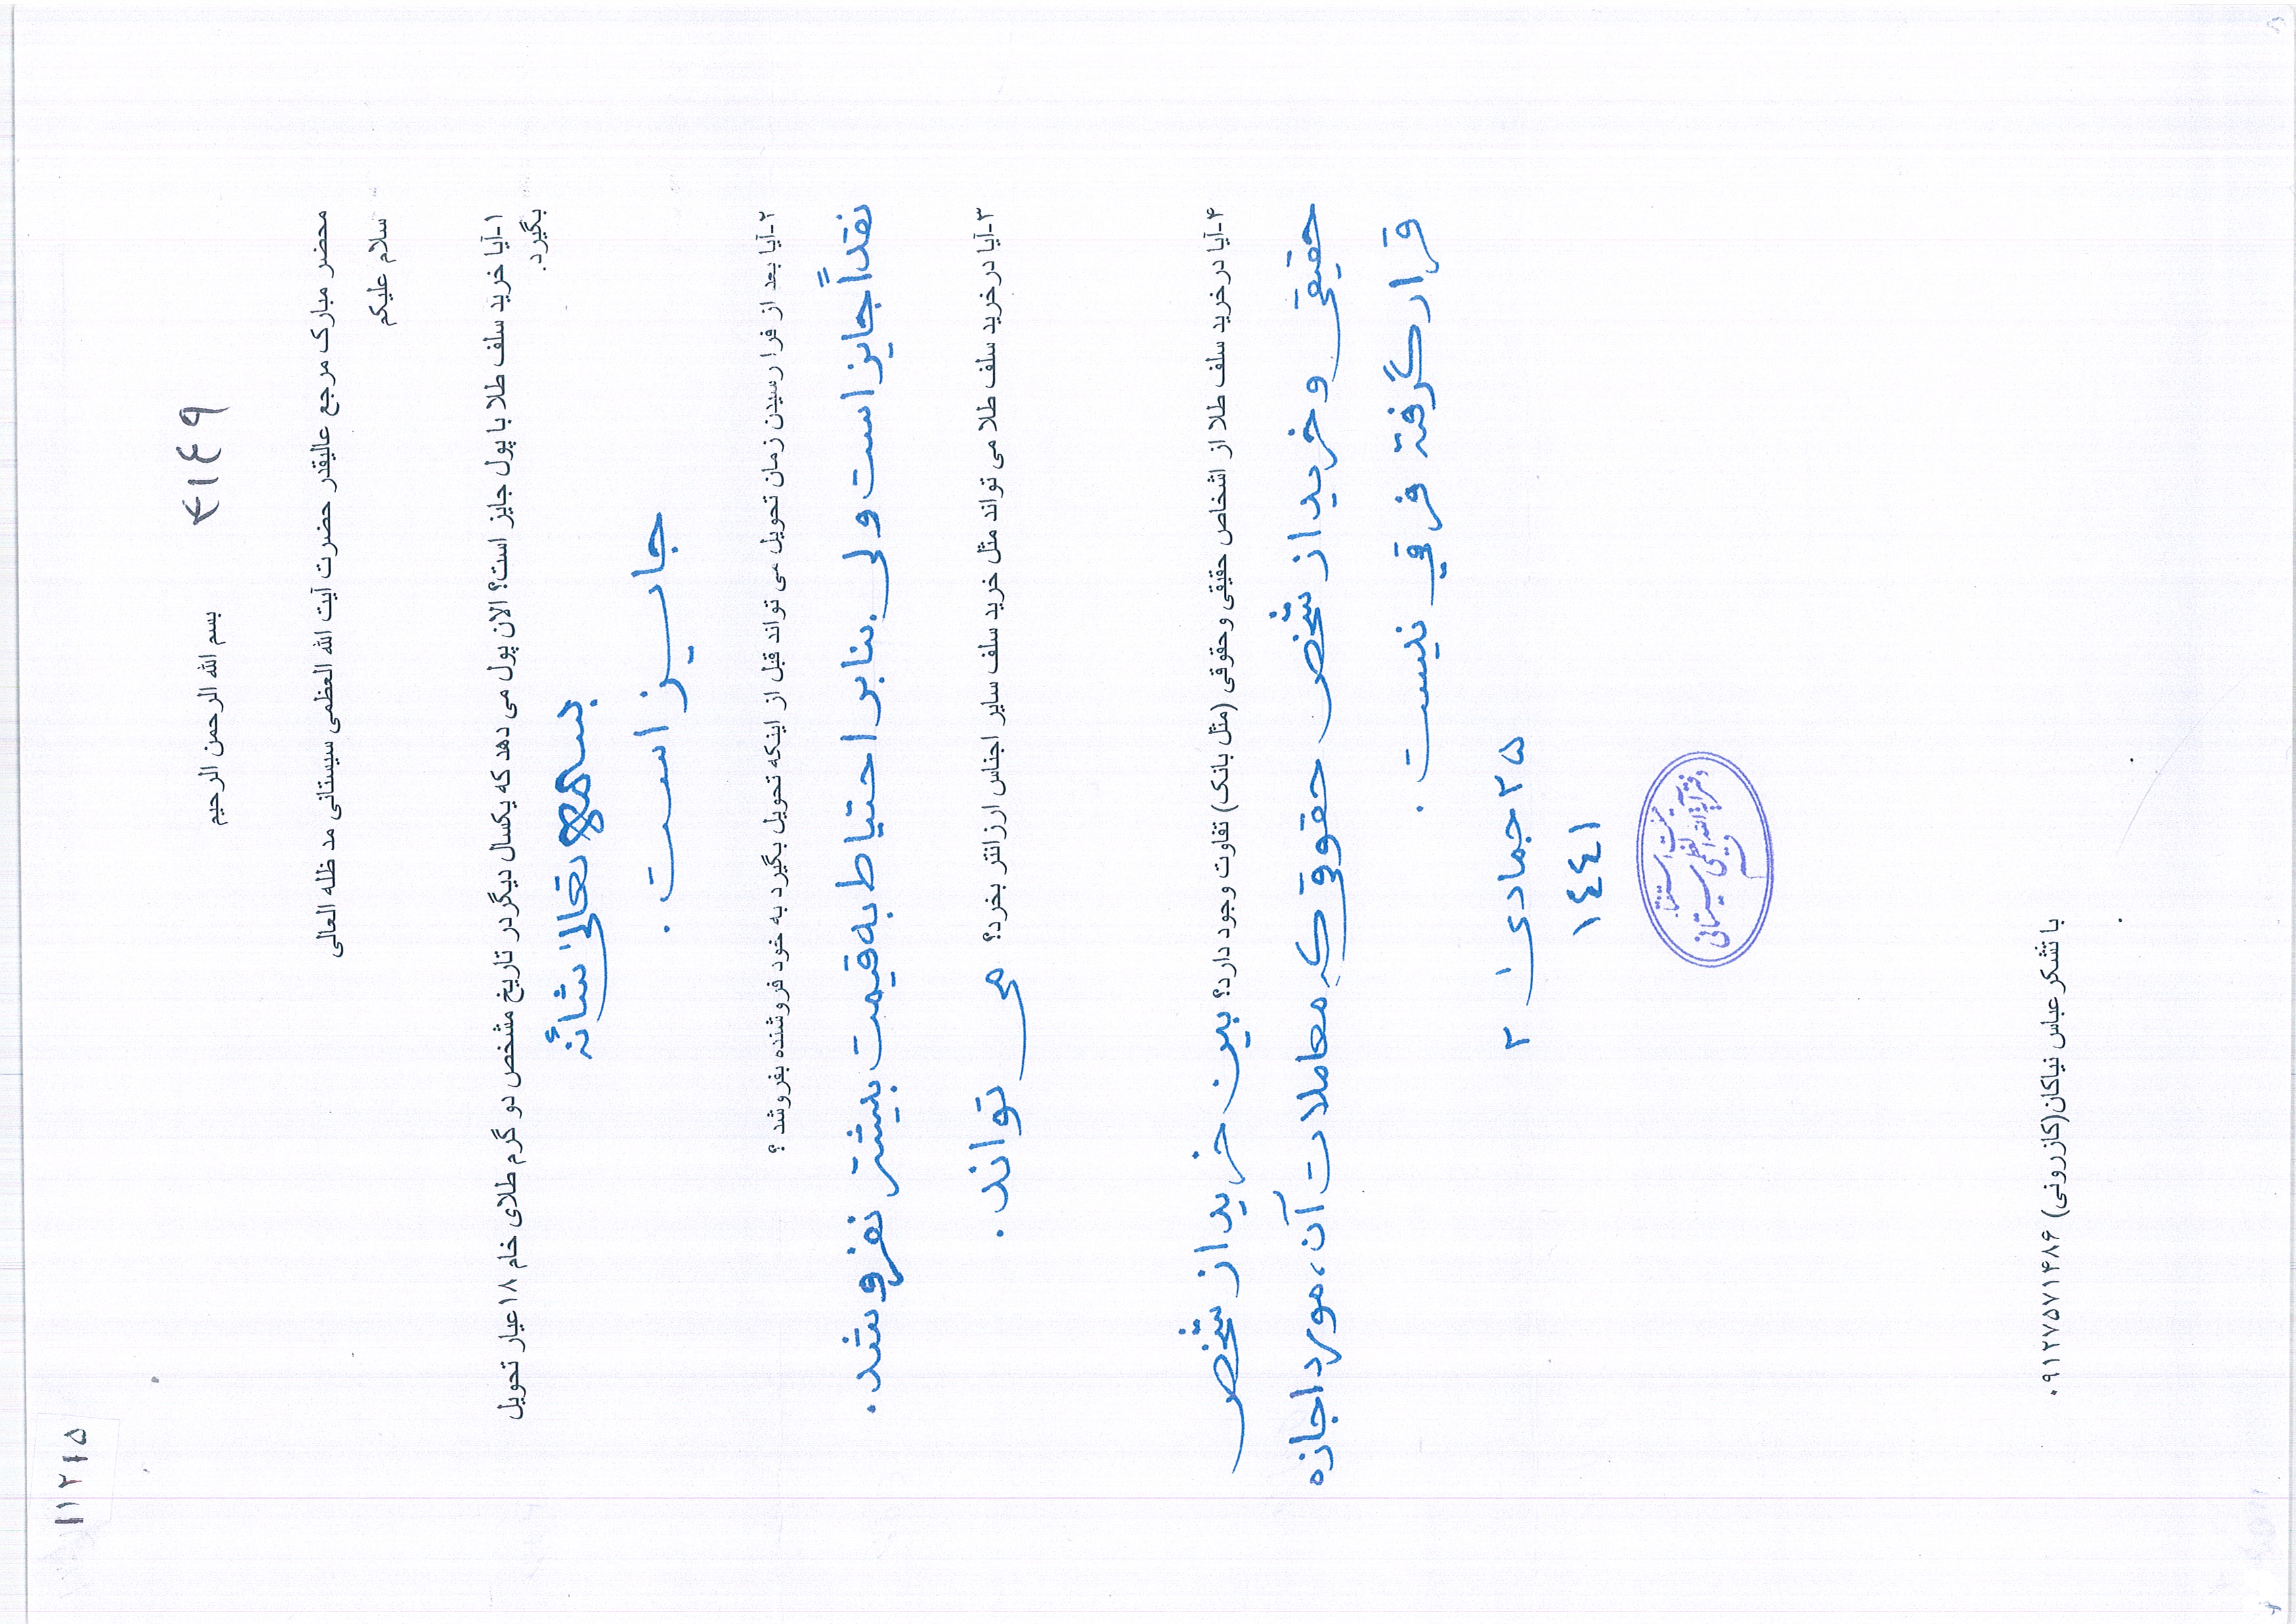 ۱۱۲۱۵
۴۱٤۹
بسم الله الرحمن الرحیم
محضر مبارک مرجع عالیقدر حضرت آیت الله العظمی سیستانی مد ظله العالی
سلام علیکم
۱-آیا خرید سلف طلا با پول جایز است؟ الان پول می دهد که یکسال دیگر در تاریخ مشخص دو گرم طلای خام ۱۸عیار تحویل
بگیرد.
بسمه تعالی شأنه
جایز است .
۲-آیا بعد از فرا رسیدن زمان تحویل می تواند قبل از اینکه تحویل بگیرد به خود فروشنده بفروشد ؟
نقداً جایز است ولی بنابر احتیاط به قیمت بیشتر نفروشد .
۳-آیا در خرید سلف طلا می تواند مثل خرید سلف سایر اجناس ارزانتر بخرد؟ می تواند .
۴-آیا در خرید سلف طلا از اشخاص حقیقی و حقوقی (مثل بانک) تفاوت وجود دارد؟ بین خرید از شخص
حقیقی و خرید از شخص حقوقی که معاملات آن ، مورد اجازه
قرار گرفته فرقی نیست .
۲۵ جمادی ۱ ۲
۱٤٤۱
دفتر آیة الله العظمی سیستانی
با تشکر عباس نیاکان(کازرونی) ۰۹۱۲۷۵۷۱۴۸۶